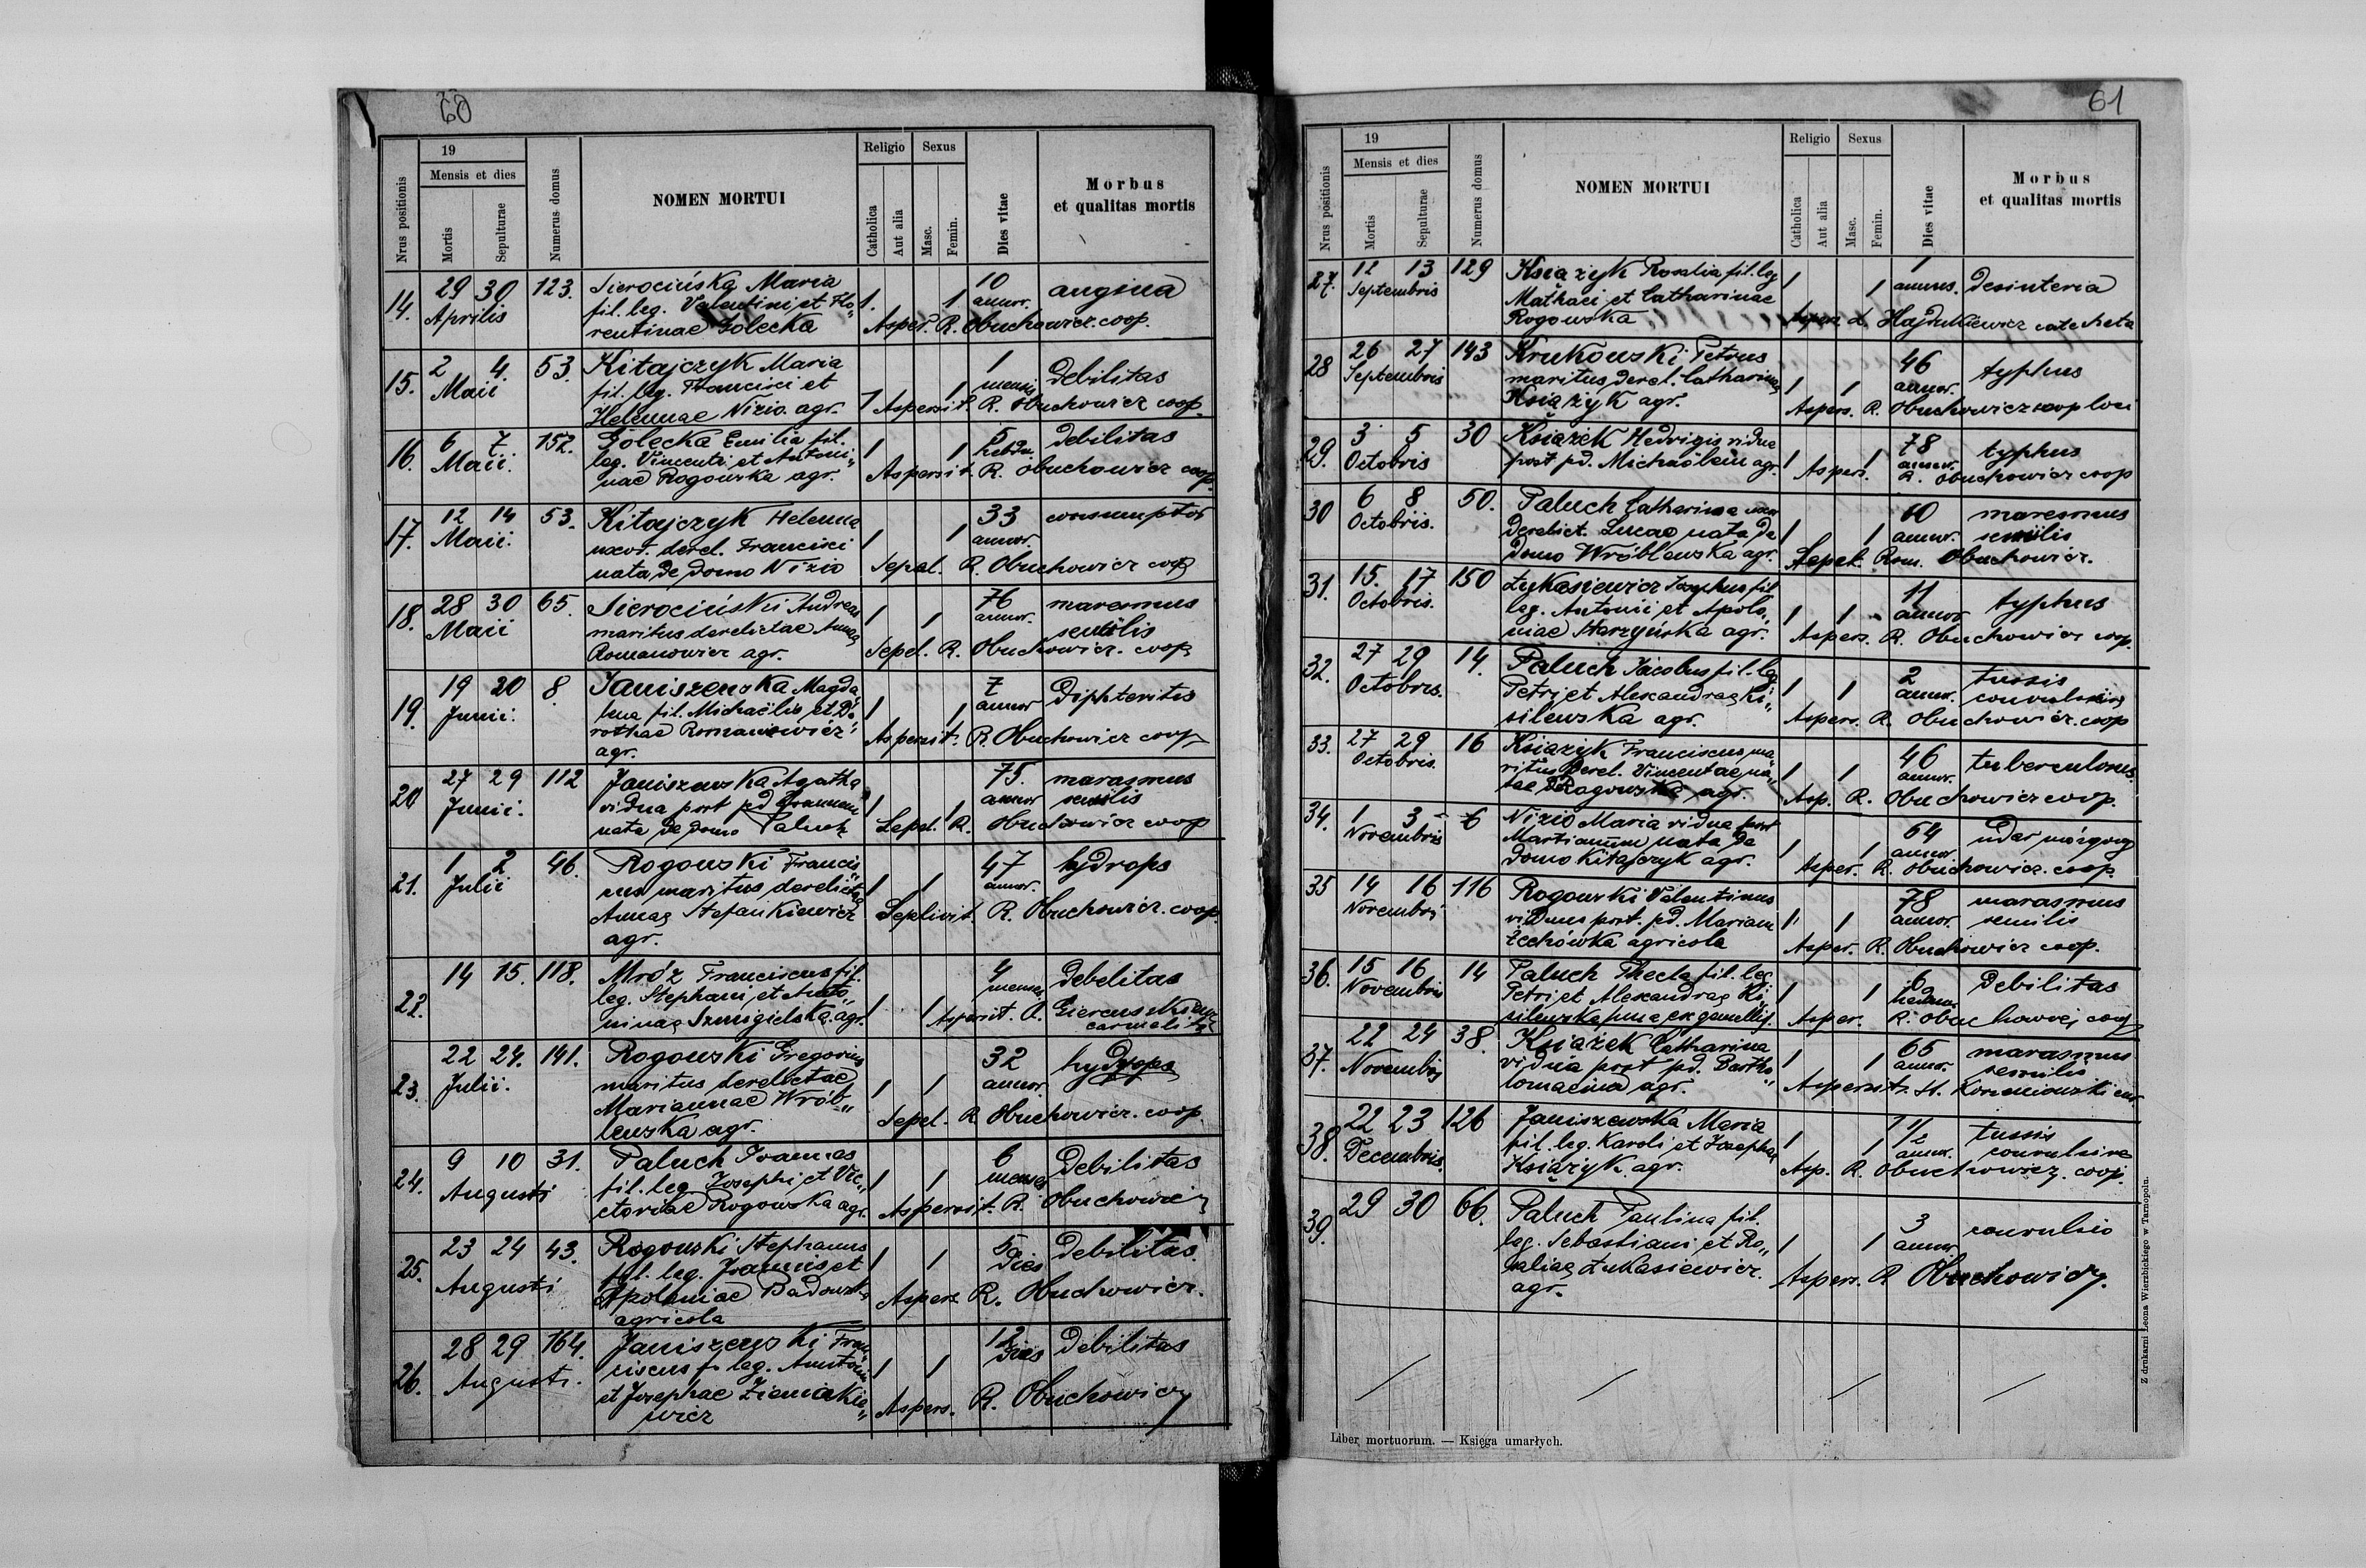 60
19
Religio Sexus
Mensis et dies
Nrus positionis
Mortis
Sepulturae
Numerus domus
NOMEN MORTUI
Catholica
Aut alia
Masc.
Femin.
Dies vitae
Morbus
et qualitas mortis
14. 29 30 123. Sierocińska Maria 10 angina
Aprilis fil. leg. Valentini et Flo„ 1. 1 annor.
rentinae Golecka Aspers. R. Obuchowicz coop.
15. 2 4. 53. Kitajczyk Maria 1 debilitas
Maii fil. leg. Francisci et 1 mensis
Helennae Nizio agr. 1 Aspersit. R. Obuchowicz coop.
16. 6 7. 152. Golecka Emilia fil. 1 1 5 debilitas
Maii. leg. Vincenti et Antoni„ hebdm.
nae Rogowska agr. Aspersit. R. Obuchowicz coop.
17. 12 14 53. Kitajczyk Helenna 33
Maii. uxor. derel. Francisci 1 1 annor.
nata de domo Nizio Sepel. R. Obuchowicz coop
18. 28 30 65. Sierociński Andreas 1 1 76 marasmus
Maii maritus derelictae Annae annor. senilis
Romanowicz agr. Sepel. R. Obuchowicz. coop
19. 19 20 8. Janiszewska Magda„ 7 diphteritis
Junii. lena fil. Michaëlis et Do„ 1 1 annor
rothae Romanowicz Aspersit. R. Obuchowicz coop
agr.
20 27 29 112 Janiszewska Agatha 75. marasmus
Junii. vidua post pd Joannem 1 1 annor senilis
nata de domo Paluch Sepel. R. Obuchowicz coop
21. 1 2 46. Rogowski Francis„ 47 hydrops
Julii cus maritus derelictae 1 1 annor.
Annae Stefankiewicz R. Obuchowicz. coop
agr.
22. 14 15. 118. Mróz Franciscus fil. 4 debelitas
leg. Stephani et Anto„ menses
ninae Szmigielska agr. 1 1 Aspersit.
carmelita
23. 22 24. 141. Rogowski Gregorius 32 hydrops
Julii. maritus derelictae 1 1 annor.
Mariannae Wrób„ Sepel. R. Obuchowicz. coop.
lewska agr.
24. 9 10 31. Paluch Joannes 6 debilitas
Augusti fil. leg Josephi et Vic„ 1 1 menses
ctoriae Rogowska agr. Aspersit. R. Obuchowicz
25. 23 24 43. Rogowski Stephanus 1 1 5 debilitas.
Augusti fil. leg. Joannis et dies
Apoloniae Badowska Aspers R. Obuchowicz.
agricola
26. 28 29 164. Janiszewski Fran„ 12 debilitas
Augusti. ciscus f. leg. Antonii 1 1 dies
et Josephae Ziemiakie„ Aspers. R. Obuchowicz
wicz
61
19
Religio Sexus
Mensis et dies
Nrus positionis
Mortis
Sepulturae
Numerus domus
NOMEN MORTUI
Catholica
Aut alia
Masc.
Femin.
Dies vitae
Morbus
et qualitas mortis
27. 12 13 129 Książyk Rosalia fil. leg 1
Septembris Mathaei et Catharinae 1 1 annus. desinteria
Rogowska Aspers. Hajdukiewicz catecheta
28 26 27 143 Krukowski Petrus 46 typhus
Septembris maritus derel. Catharinae 1 1 annor.
Książyk agr. Aspers. R. Obuchowicz coop loci
29. 3 5 30 Książek Hedvigis vidua 78 typhus
Octobris post pd. Michaëlem agr. 1 1 annor.
Aspers. R. Obuchowicz coop
30 6 8 50. Paluch Catharina uxor 60 marasmus
Octobris. derelict. Lucae nata de 1 1 annor. senilis
domo Wróblewska agr. Sepel. Rom. Obuchowicz.
31. 15. 17 150 Łukasiewicz Josephus fil 11 typhus
Octobris. leg. Antonii et Apolo„ 1 1 annor
niae Starzyńska agr. Aspers. R. Obuchowicz coop.
32. 27 29 14. Paluch Jacobus fil. leg 2 tussis
Octobris. Petri et Alexandrae Ki„ 1 1 annor. convulsiva
silewska agr. Aspers. R. Obuchowicz. coop
33. 27 29 16 Książyk Franciscus ma„ 46 tuberculosus.
Octobris. ritus derel. Vincentae na„ 1 1 annor.
tae Rogowska agr. Asp. R. Obuchowicz coop.
34. 1 3 6 Nizio Maria vidua post 64 udar mózgowy
Novembris Martianum nata de 1 1 annor.
domo Kitajczyk agr. Asper. R. Obuchowicz. coop.
35 14 16 116 Rogowski Valentinus 78 marasmus
Novembris viduus post. pd. Mariam 1 1 annor. senilis
Żechówka agricola Asper. R. Obuchowicz coop.
36. 15 16 14 Paluch Thecla fil. leg. 6 debilitas
Novembris Petri et Alexandrae Ki„ 1 1 hebdom.
silewska una ex gemellis. Asper. R. Obuchowicz coop
37. 22 24 38. Książek Catharina 65 marasmus
Novembris vidua post pd. Bartho„ 1 1 annor. senilis
lomaeum agr. Aspersit. St.
38. 22 23 126 Janiszewska Maria 1 1/2 tussis
Decembris. fil. leg. Karoli et Josephae 1 1 annor. convulsiva
Książyk agr. Asp. R. Obuchowicz. coop.
39. 29 30 66. Paluch Paulina fil. 3 convulsio
leg. Sebastiani et Ro„ 1 1 annor.
saliae Łukasiewicz. Aspers. R. Obuchowicz.
agr.
Liber mortuorum. — Księga umarłych.
Z drukarni Leona Wierzbickiego w Tarnopolu.